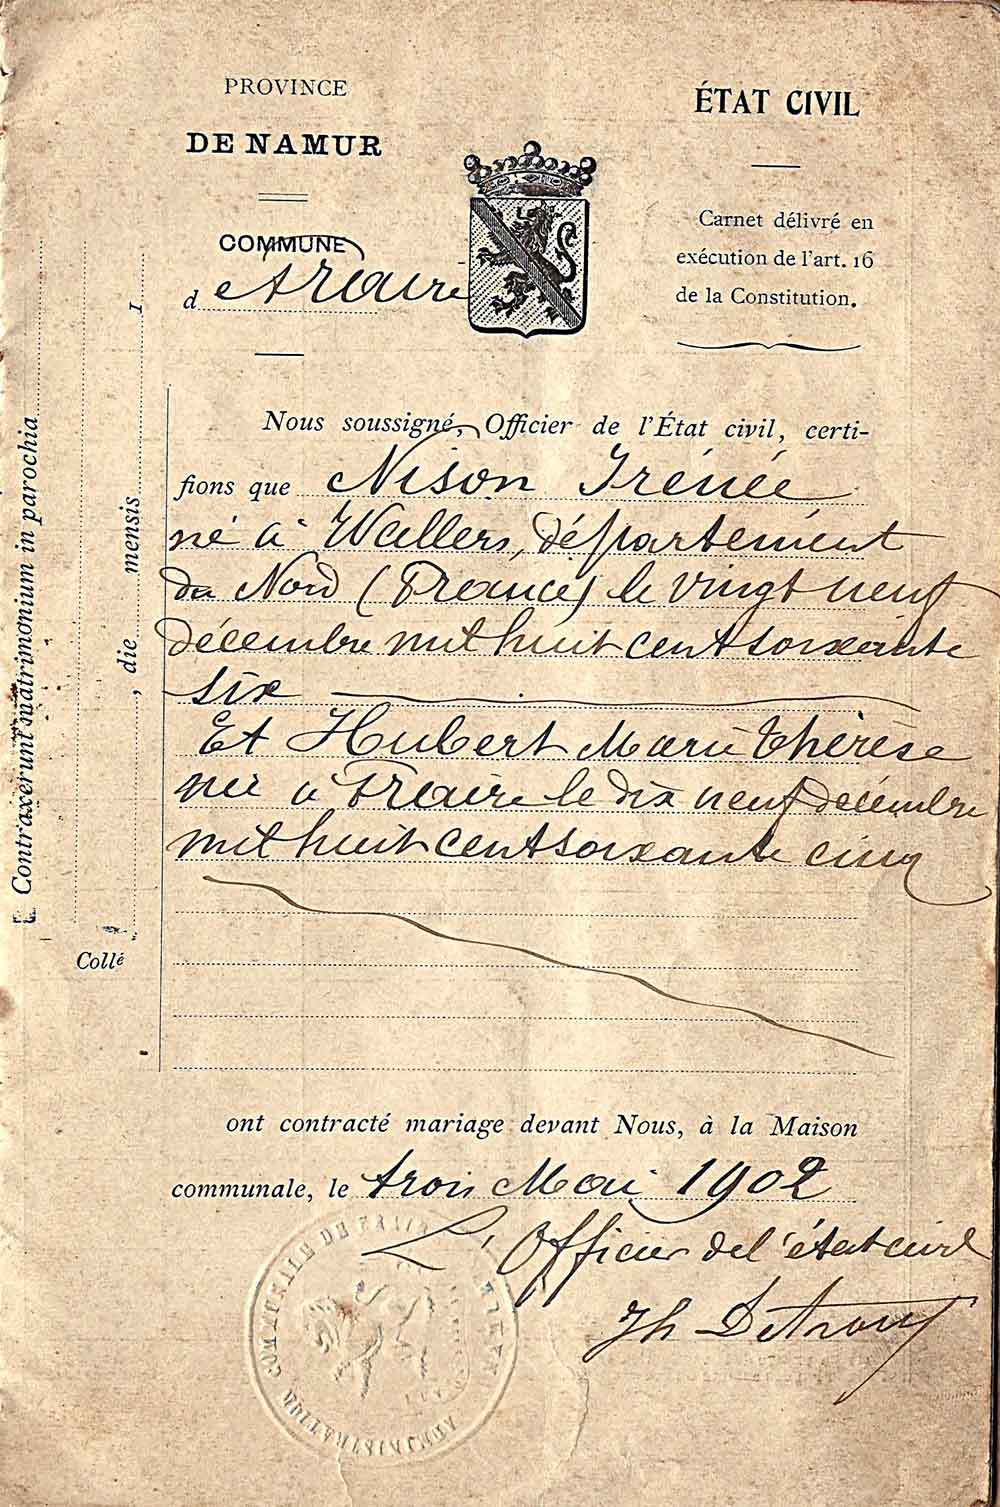 PROVINCE
DE NAMUR
COMMUNE
d
ÉTAT CIVIL
Carnet délivré en
exécution de l'art. 16
de la Constitution.
Contraxerunt matrimonium in parochia
, die mensis 1
Collé
Nous soussigné, Officier de l'État civil, certi-
fions que Nison Irénée
né à Wallers, département
du Nord (France) le vingt neuf
décembre mil huit cent soixante
six
Et Hubert Marie Thérèse
née à Fraire le dix neuf décembre
mil huit cent soixante cinq
ont contracté mariage devant Nous, à la Maison
communale, le trois Mai 1902
L'Officier de l'état civil
Th
ADMINISTRATION COMMUNALE DE